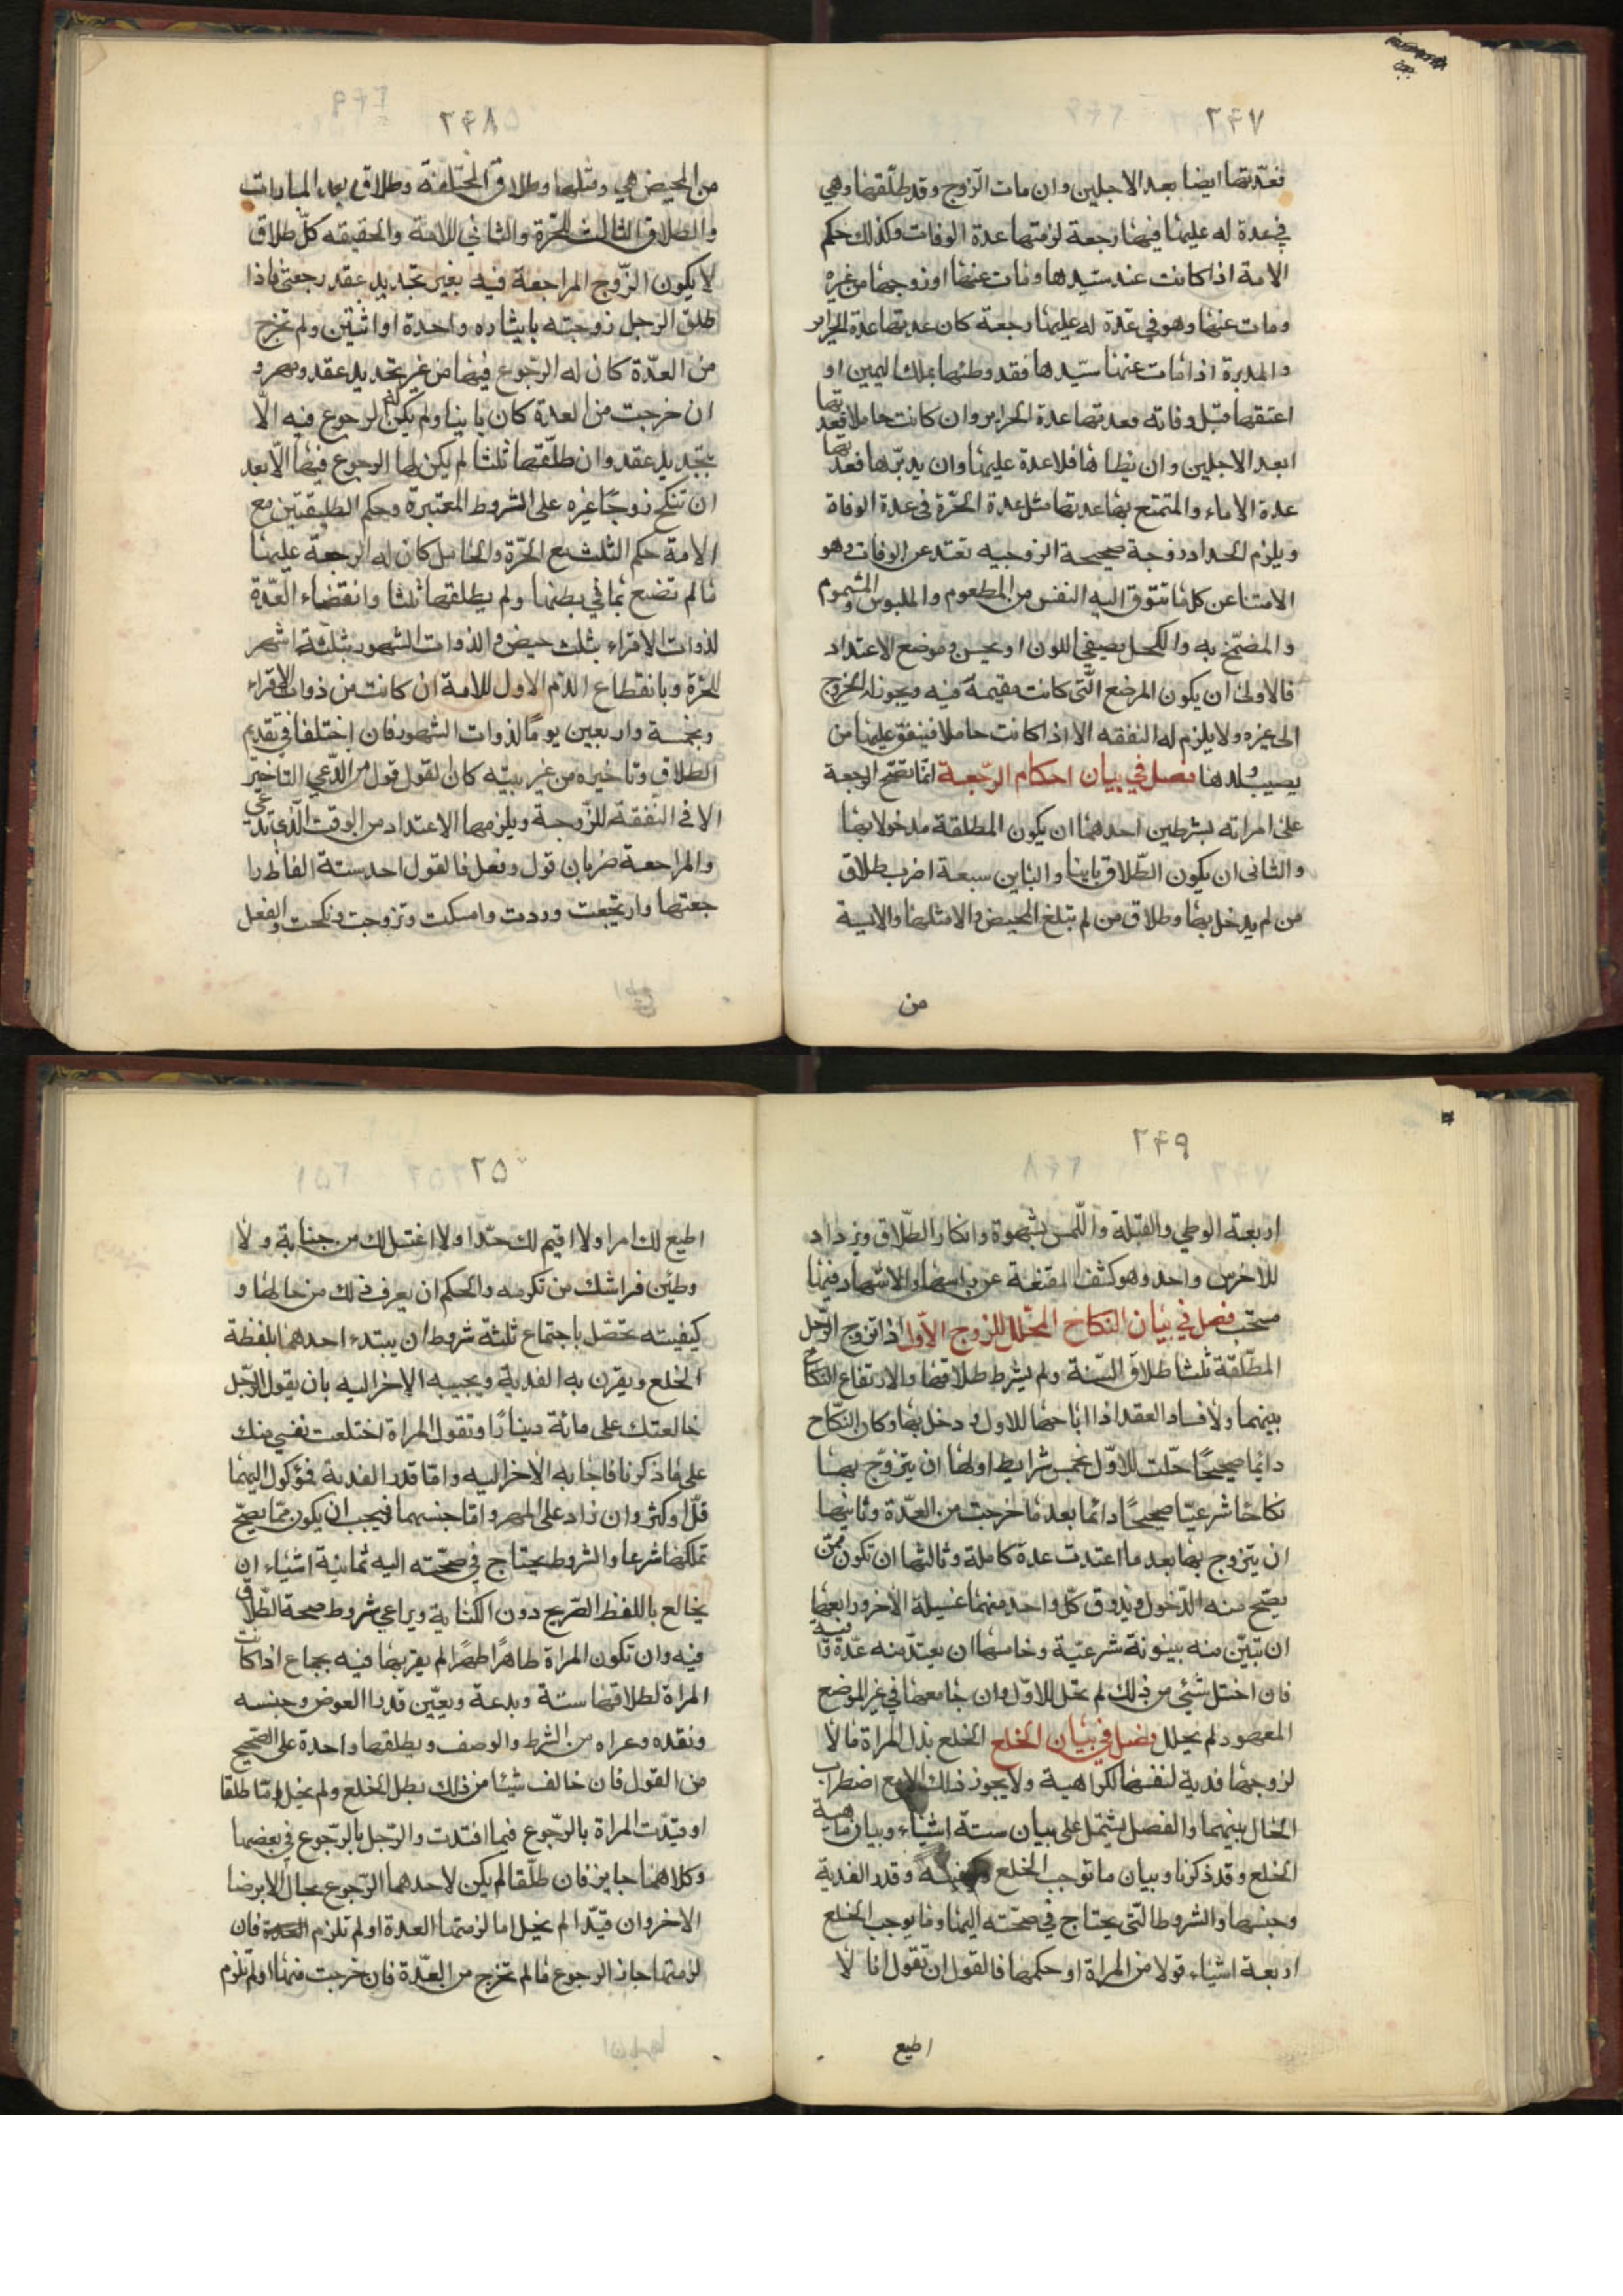 ٢۴٧
فعدتها ايضا بعد الاجلين وان مات الزوج وقد طلقها وهي
في عدة له عليها فيها رجعة لزمتها عدة الوفات وكذلك حكم
الامة اذا كانت عند سيدها ومات عنها او زوجها من غيره
ومات عنها وهو في عدة له عليها رجعة كان عدتها عدة الحراير
والمدبرة اذا مات عنها سيدها فقد وطئها بملك اليمين او
اعتقها قبل وفاته فعدتها عدة الحراير وان كانت حاملا فعدتها
ابعد الاجلين وان يطاها فلا عدة عليها وان يدبرها فعدتها
عدة الاماء والمتمتع بها عدتها مثل عدة الحرة في عدة الوفاة
ويلزم الحداد زوجة صحيحة الزوجيه تعتد عن الوفات وهو
الامتنا عن كلما تتوق اليه النفس من المطعوم والملبوس والمشموم
والمضمخ به والكحل يصيفي اللون او يحسن وموضع الاعتداد
فالاولى ان يكون المرضع التى كانت مقيمة فيه ويجوز له الخروج
الى غيره ولا يلزم له النفقه الا اذا كانت حاملا فينفق عليها من
يصيب ولدها فصل في بيان احكام الرجعة انما تصح الرجعة
على امراته بشرطين احدهما ان يكون المطلقة مدخولا بها
والثانى ان يكون الطلاق باينا والباين سبعة اضرب طلاق
من لم يدخل بها وطلاق من لم تبلغ المحيض والامثلها والايسة
من
٢۴٨
من المحيض هي ومثلها وطلاق المختلعة وطلاق بعد المبارات
والطلاق الثالث للحرة والثاني للامة والحقيقه كل طلاق
لا يكون الزوج المراجعة فيه بغير تجديد عقد رجعتى فاذا
طلق الرجل زوجته بايشاره واحدة او اثنتين ولم تخرج
من العدة كان له الرجوع فيها من غير تجديد عقد ومهر و
ان خرجت من العدة كان باينا ولم يكن له الرجوع فيه الا
بتجديد عقد وان طلقها ثلثا لم يكن لها الرجوع فيها الا بعد
ان تنكح زوجا غيره على الشروط المعتبرة وحكم الطليقتين مع
الامة حكم الثلث مع الحرة والحامل كان له الرجعة عليها
ما لم تضع بما في بطنها ولم يطلقها ثلثا وانقضاء العدة
لذوات الاقراء بثلث حيض و الذوات الشهور بثلثة اشهر
للحرة وبانقطاع الدم الاول للامة ان كانت من ذوات الاقراء
وبخمسة واربعين يوما لذوات الشهور فان اختلفا في تقديم
الطلاق وتاخيره من غير بينه كان القول قول من ادعي التاخير
الا في النفقة للزوجة ويلزمها الاعتداد من الوقت الذي تدعى
والمراجعة ضربان قول وفعل فالقول احد ستة الفاظ را
جعتها وارتجعت ورددت وامسكت وتزوجت ونكحت والفعل
٢۴٩
اربعة الوطي والقبلة واللمس بشهوة وانكار الطلاق ويزداد
للاخرس واحد وهو كشف المقنعة عن راسها والاشهاد فيها
مستحب فصل في بيان النكاح المحلل للزوج الاول اذا تزوج الرجل
المطلقة ثلثا طلاق السنة ولم يشرط طلاقها والارتفاع النكاح
بينهما ولا فساد العقد اذا اباحها للاول و دخل بها وكان النكاح
دائما صحيحا حلت للاول بخمس شرايط اولها ان يتزوج بها
نكاحا شرعيا صحيحا دائما بعد ما خرجت من العدة وثانيها
ان يتزوج بها بعد ما اعتدت عدة كاملة وثالثها ان تكون ممن
يصح منه الدخول ويذوق كل واحد منهما عسيلة الاخر ورابعها
ان تبين منه بينونة شرعية وخامسها ان يعتد منه عدة وافية
فان اختل شيئ من ذلك لم تحل للاول وان جامعها في غير الموضع
المعهود لم يحلل فصل في بيان الخلع الخلع بذل المراة مالا
لزوجها فدية لنفسها لكراهية ولا يجوز ذلك الا مع اضطراب
الحال بينهما والفصل يشتمل على بيان ستة اشياء وبيان ماهية
الخلع وقد ذكرنا وبيان ما توجب الخلع وكيفيته وقدر الفدية
وجنسها والشروط التي يحتاج في صحته اليها وما يوجب الخلع
اربعة اشياء قولا من المراة او حكمها فالقول ان تقول انا لا
اطيع
٢٥٠
اطيع لك امرا ولا اقيم لك حدا ولا اغتسل لك من جنابة و لا
وطين فراشك من تكرهه والحكم ان يعرف ذلك من حالها و
كيفيته تحصل باجتماع ثلثة شروط ان يبتدء احدهما بلفظة
الخلع ويقرن به الفدية ويجيبه الاخر اليه بان يقول الرجل
خالعتك على مائة دينارا وتقول المراة اختلعت نفسي منك
على ما ذكرنا فاجابه الاخر اليه واما قدر الفدية فموكول اليهما
قل او كثر وان زاد على المهر واما جنسهما فيجب ان يكون مما يصح
تملكها شرعا والشروط يحتاج في صحته اليه ثمانية اشياء ان
يخالع باللفظ الصريح دون الكناية ويراعي شروط صحة الطلاق
فيه وان تكون المراة طاهرا طهرا لم يقربها فيه بجماع اذا كانت
المراة لطلاقها سنة وبدعة ويعين قدر العوض وجنسه
ونقده وعراه من الشرط والوصف ويطلقها واحدة على الصحيح
من القول فان خالف شيئا من ذلك بطل الخلع ولم يخل اما طلقا
او قيدت المراة بالرجوع فيما افتدت والرجل بالرجوع في بعضها
وكلاهما جايز فان طلقا لم يكن لاحدهما الرجوع بحال الا برضا
الاخر وان قيدا لم يخل اما لزمتها العدة او لم تلزم العدة فان
لزمتها جاز الرجوع ما لم تخرج من العدة فان خرجت منها او لم تلزم